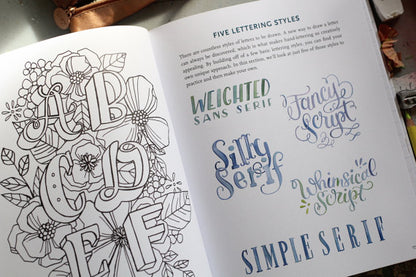 A B
C D
E F
FIVE LETTERING STYLES
There are countless styles of letters to be drawn. A new way to draw a letter
can always be discovered, which is what makes hand-lettering so creatively
appealing. By building off of a few basic lettering styles, you can find your
own unique approach. In this section, we'll look at just five of those styles to
practice and then make your own.
WEIGHTED
SANS SERIF
Fancy
Script
Silly
Serif
Whimsical
Script
SIMPLE SERIF